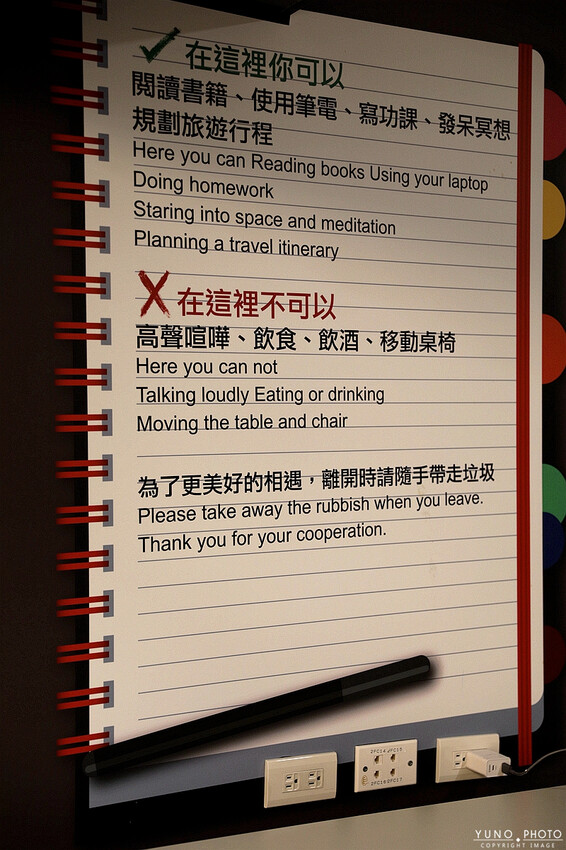 在這裡你可以
閱讀書籍、使用筆電、寫功課、發呆冥想
規劃旅遊行程
Here you can Reading books Using your laptop
Doing homework
Staring into space and meditation
Planning a travel itinerary
在這裡不可以
高聲喧嘩、飲食、飲酒、移動桌椅
Here you can not
Talking loudly Eating or drinking
Moving the table and chair
為了更美好的相遇，離開時請隨手帶走垃圾
Please take away the rubbish when you leave.
Thank you for your cooperation.
2FC14 2FC15
2FC16 2FC17
YUNO PHOTO
COPYRIGHT IMAGE